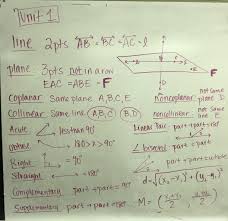 Unit 1
line 2pts AB = BC = AC = l
plane 3pts not in a row
EAC = ABE = F
F
Coplanar Same plane A,B,C,E
Noncoplanar not same plane D
Collinear Same line (A,B,C) (B,D)
noncollinear not same line E
Acute less than 90°
Linear Pair part + part = 180
Obtuse 180 > x > 90°
∠ part + part = whole
Right = 90°
part + part = whole
Straight = 180
Complementary part + part = 90
Supplementary part + part = 180
M =